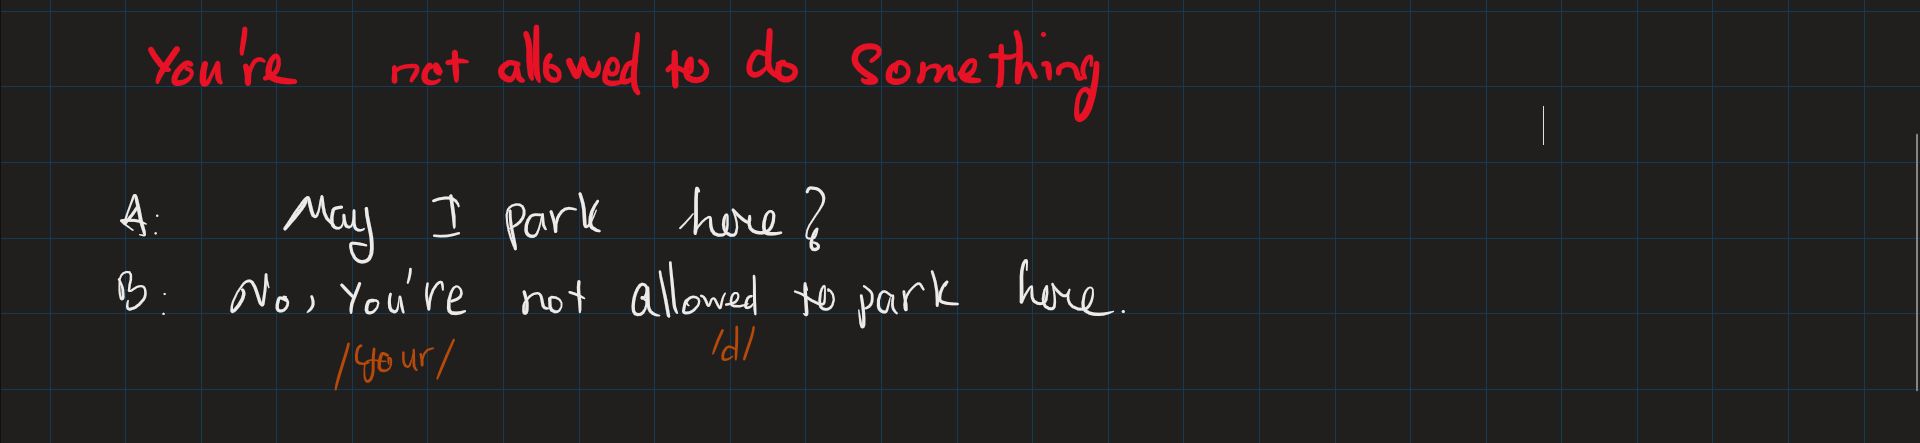 You're not allowed to do Something
A: May I park here?
B: No, You're not allowed to park here.
/your/ /d/